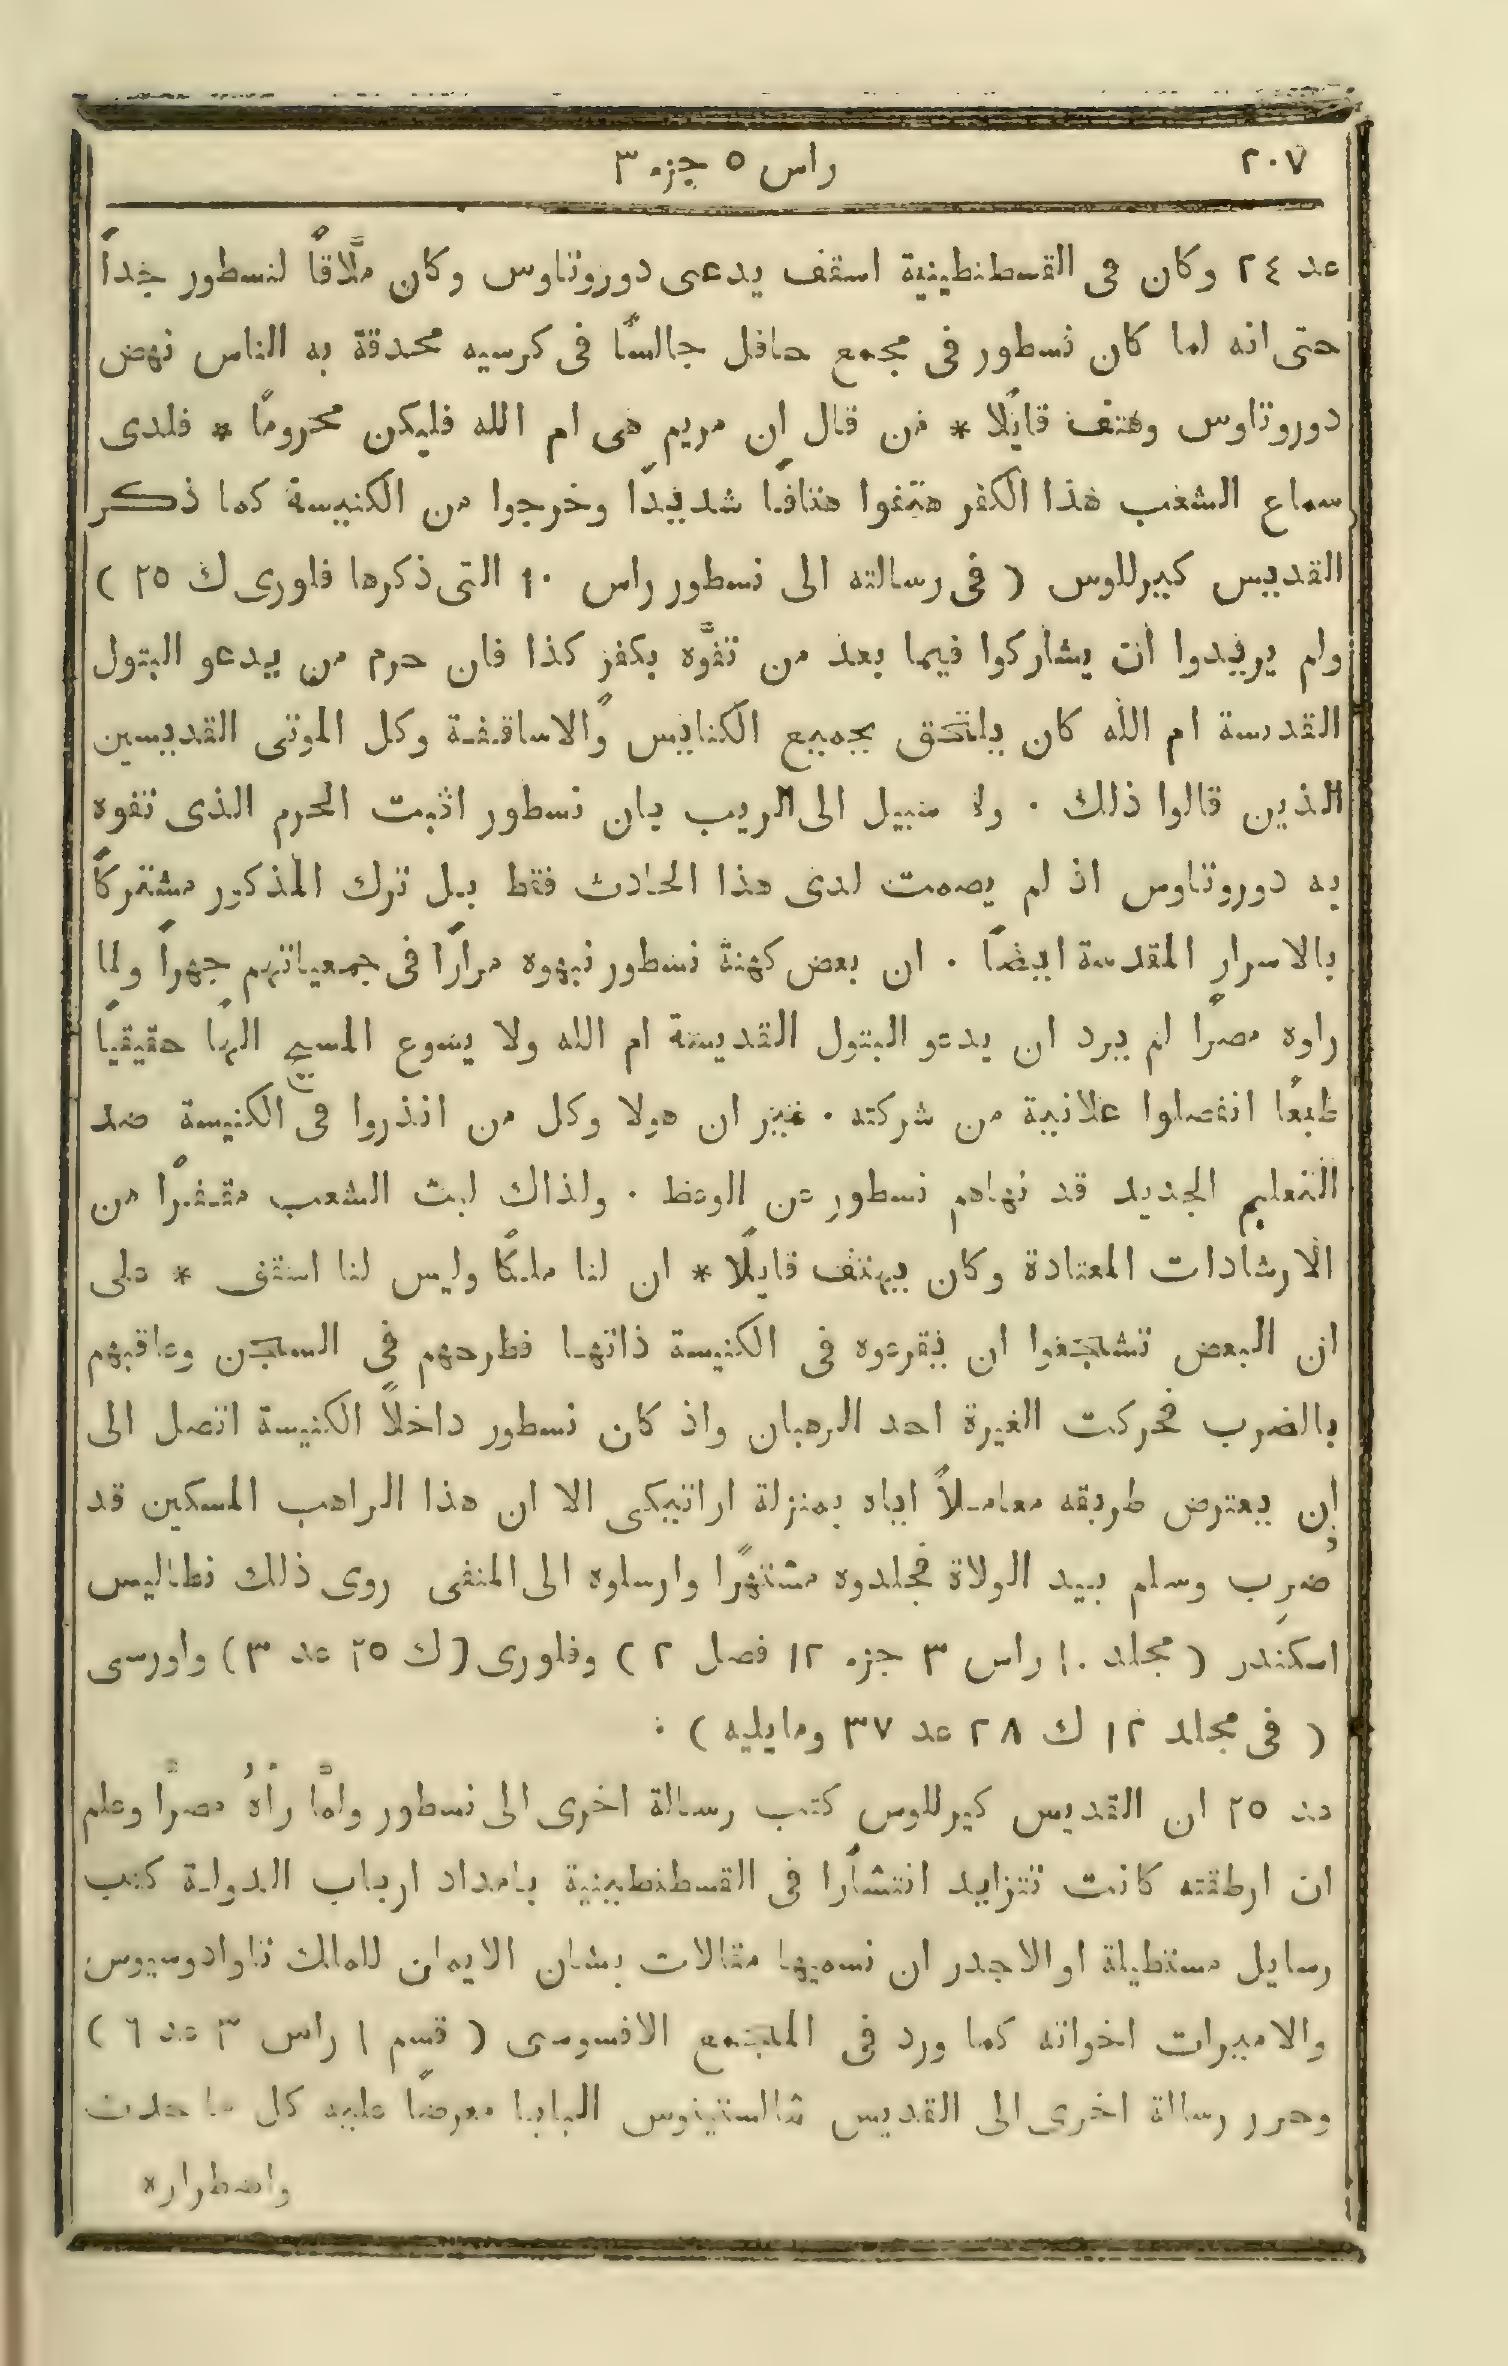 ٢٠٧
راس ٥ جزء ٣
عد ٢٤ وكان فى القسطنطينية اسقف يدعى دوروتاوس وكان ملَّاقاً لنسطور جداً
حتى انه لما كان نسطور فى مجمع حافل جالسًا فى كرسيه محدقة به الناس نهض
دوروتاوس وهتف قايلًا * من قال ان مريم هى ام الله فليكن محرومًا * فلدى
سماع الشعب هذا الكفر هتفوا هتافًا شديدًا وخرجوا من الكنيسة كما ذكر
القديس كيرللوس ( فى رسالته الى نسطور راس ١٠ التى ذكرها فلورى ك ٢٥ )
ولم يريدوا ان يشاركوا فيما بعد من تفوَّه بكفر كذا فان حرم من يدعو البتول
القدسة ام الله كان يلتحق بجميع الكنايس والاساقفة وكل الموتى القديسين
الذين قالوا ذلك . ولا سبيل الى الريب بان نسطور اثبت الحرم الذى تفوه
به دوروتاوس اذ لم يصمت لدى هذا الحادث فقط بل ترك المذكور مشتركاً
بالاسرار المقدسة ايضاً . ان بعض كهنة نسطور نبهوه مرارًا فى جمعياتهم جهراً ولما
راوه مصرًا لم يرد ان يدعو البتول القديسة ام الله ولا يسوع المسيح الهًا حقيقياً
طبعًا انفصلوا علانية من شركته . غير ان هولا وكل من انذروا فى الكنيسة ضد
التعليم الجديد قد نهاهم نسطور عن الوعظ . ولذاك لبث الشعب مقفرًا من
الارشادات المعتادة وكان يهتف قايلًا * ان لنا ملكًا وليس لنا اسقف * على
ان البعض تشجعوا ان يقرعوه فى الكنيسة ذاتها فطرحهم فى السجن وعاقبهم
بالضرب فحركت الغيرة احد الرهبان واذ كان نسطور داخلاً الكنيسة اتصل الى
ان يعترض طريقه معاملاً اياه بمنزلة اراتيكى الا ان هذا الراهب المسكين قد
ضُرِب وسلم بيد الولاة فجلدوه مشتهرًا وارسلوه الى المنفى روى ذلك نطاليس
اسكندر ( مجلد ١٠ راس ٣ جزء ١٢ فصل ٢ ) وفلورى ( ك ٢٥ عد ٣ ) واورسى
( فى مجلد ١٢ ك ٢٨ عد ٣٧ ومايليه ) :
عد ٢٥ ان القديس كيرللوس كتب رسالة اخرى الى نسطور ولمَّا رأهُ مصرًا وعلم
ان ارطقته كانت تتزايد انتشارًا فى القسطنطينية بامداد ارباب الدولة كتب
رسايل مستطيلة او الاجدر ان نسميها مقالات بشان الايمان للملك تاوادوسيوس
والاميرات اخواته كما ورد فى المجمع الافسوسى ( قسم ١ راس ٣ عد ٦ )
وحرر رسالة اخرى الى القديس شالستينوس البابا معرضًا عليه كل ما حدث
واضطراره